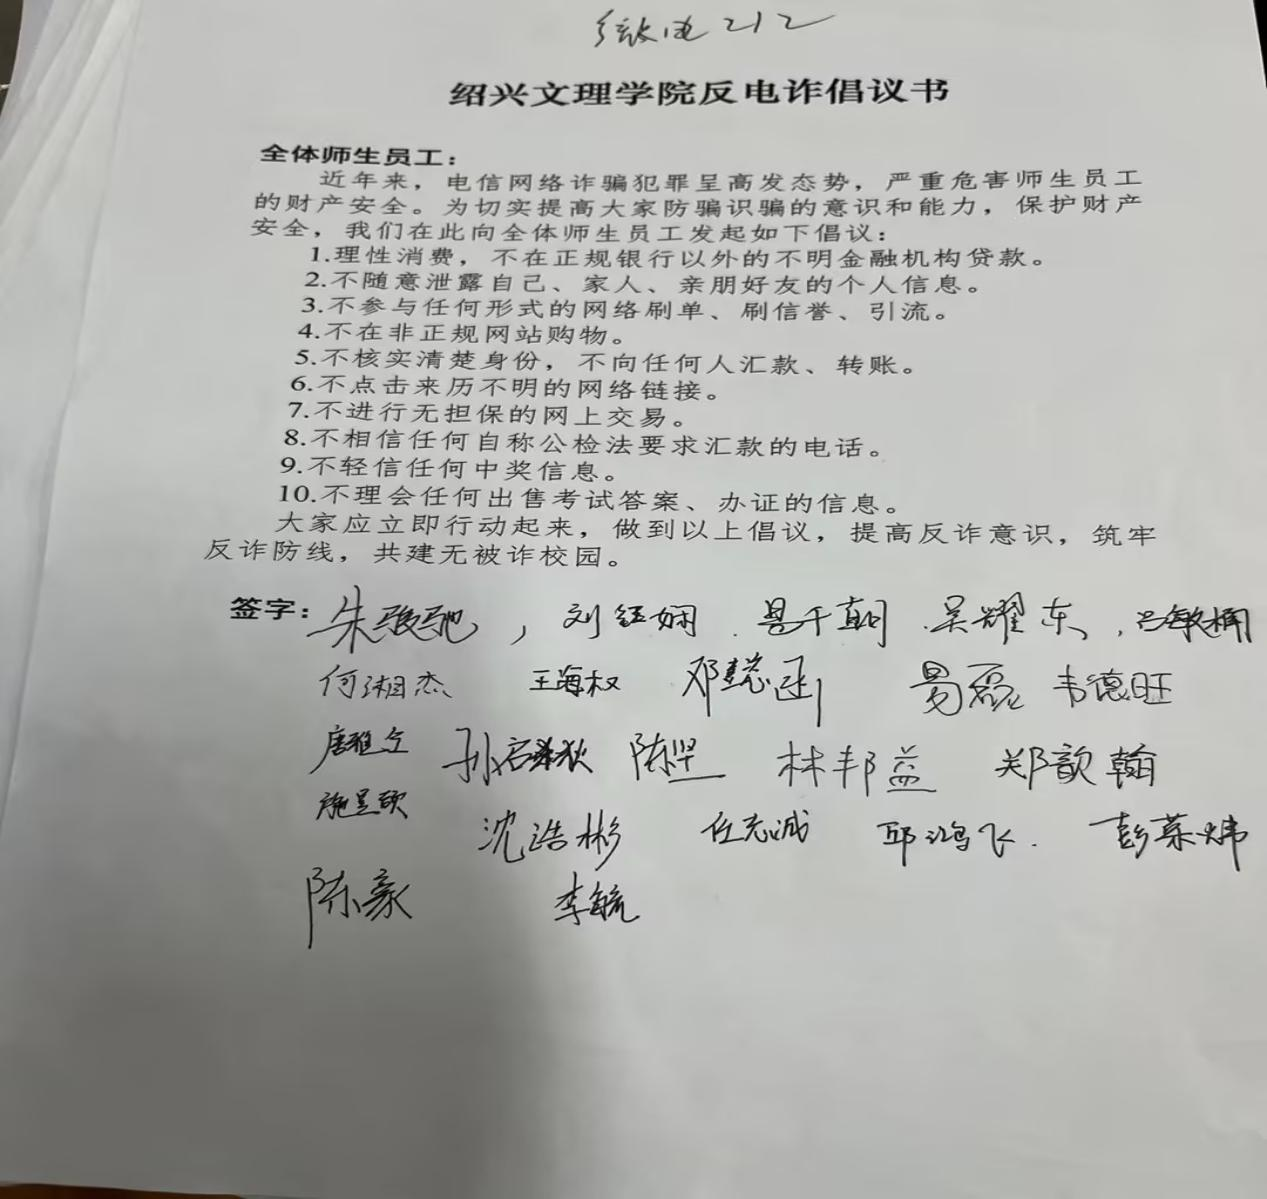 微电212
绍兴文理学院反电诈倡议书
全体师生员工：
近年来，电信网络诈骗犯罪呈高发态势，严重危害师生员工
的财产安全。为切实提高大家防骗识骗的意识和能力，保护财产
安全，我们在此向全体师生员工发起如下倡议：
1.理性消费，不在正规银行以外的不明金融机构贷款。
2.不随意泄露自己、家人、亲朋好友的个人信息。
3.不参与任何形式的网络刷单、刷信誉、引流。
4.不在非正规网站购物。
5.不核实清楚身份，不向任何人汇款、转账。
6.不点击来历不明的网络链接。
7.不进行无担保的网上交易。
8.不相信任何自称公检法要求汇款的电话。
9.不轻信任何中奖信息。
10.不理会任何出售考试答案、办证的信息。
大家应立即行动起来，做到以上倡议，提高反诈意识，筑牢
反诈防线，共建无被诈校园。
签字：朱骏驰，刘钰娴 吴耀东
何湘杰 王海权 邓懿函 易磊 韦德旺
陈坚 林邦益 郑歆翰
沈浩彬 任志诚 邱鸿飞 彭荣炜
陈豪 李毓